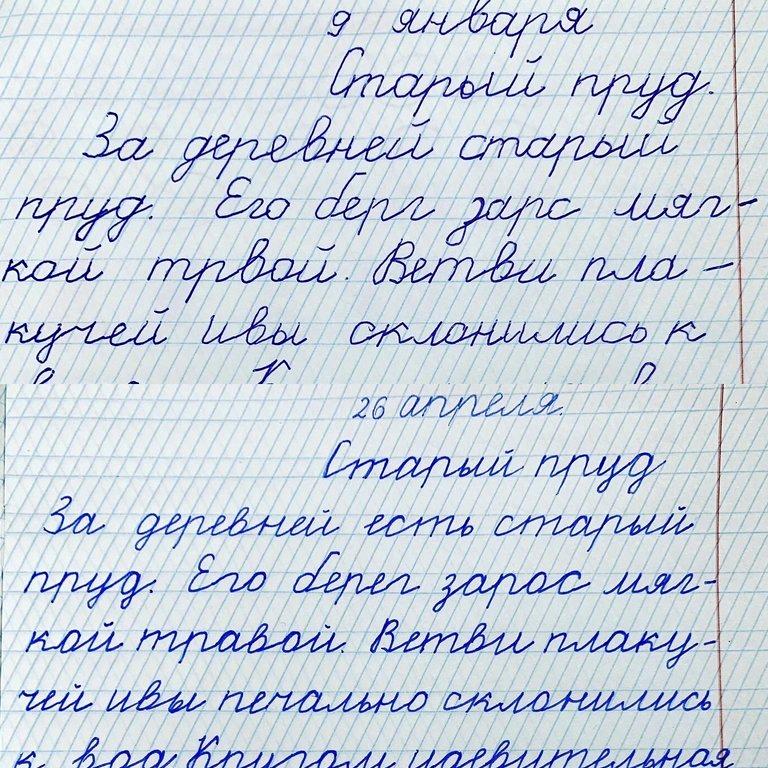 9 января
Старый пруд.
За деревней старый
пруд. Его берг зарс мяг-
кой трвой. Ветви пла-
кучей ивы склонились к
26 апреля.
Старый пруд
За деревней есть старый
пруд. Его берег зарос мяг-
кой травой. Ветви плаку-
чей ивы печально склонились
к вод Кругом удивительная